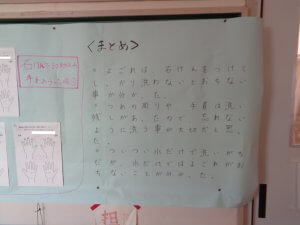 <まとめ>
・よごれは、石けんをつけて
しっかり洗わないとおちない
事が分かった。
・つめの周りや、手首は洗い
残しがあったので、忘れない
ように洗う事が大切だと思っ
た。
・ついつい水だけで洗いがち
だが、水だけではよごれがお
ちないことが分かった。
担